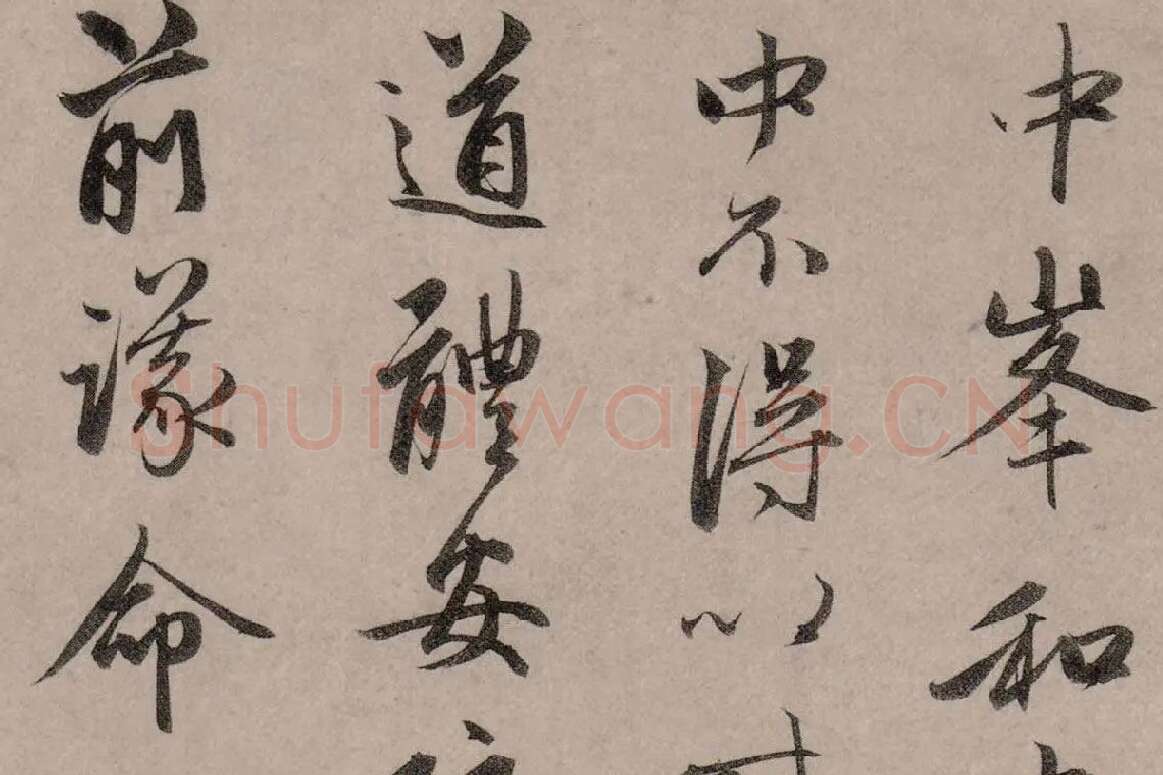 中峯和
中不得以
道體安
前蒙命
Shufawang.CN